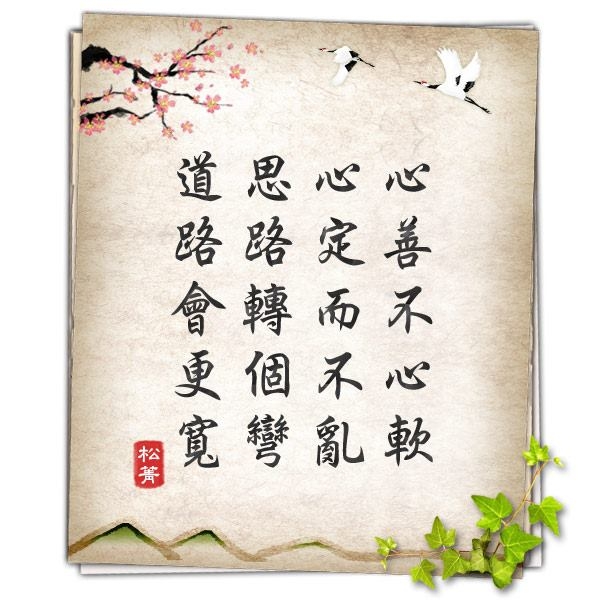 心善不心軟
心定而不亂
思路轉個彎
道路會更寬
松菁